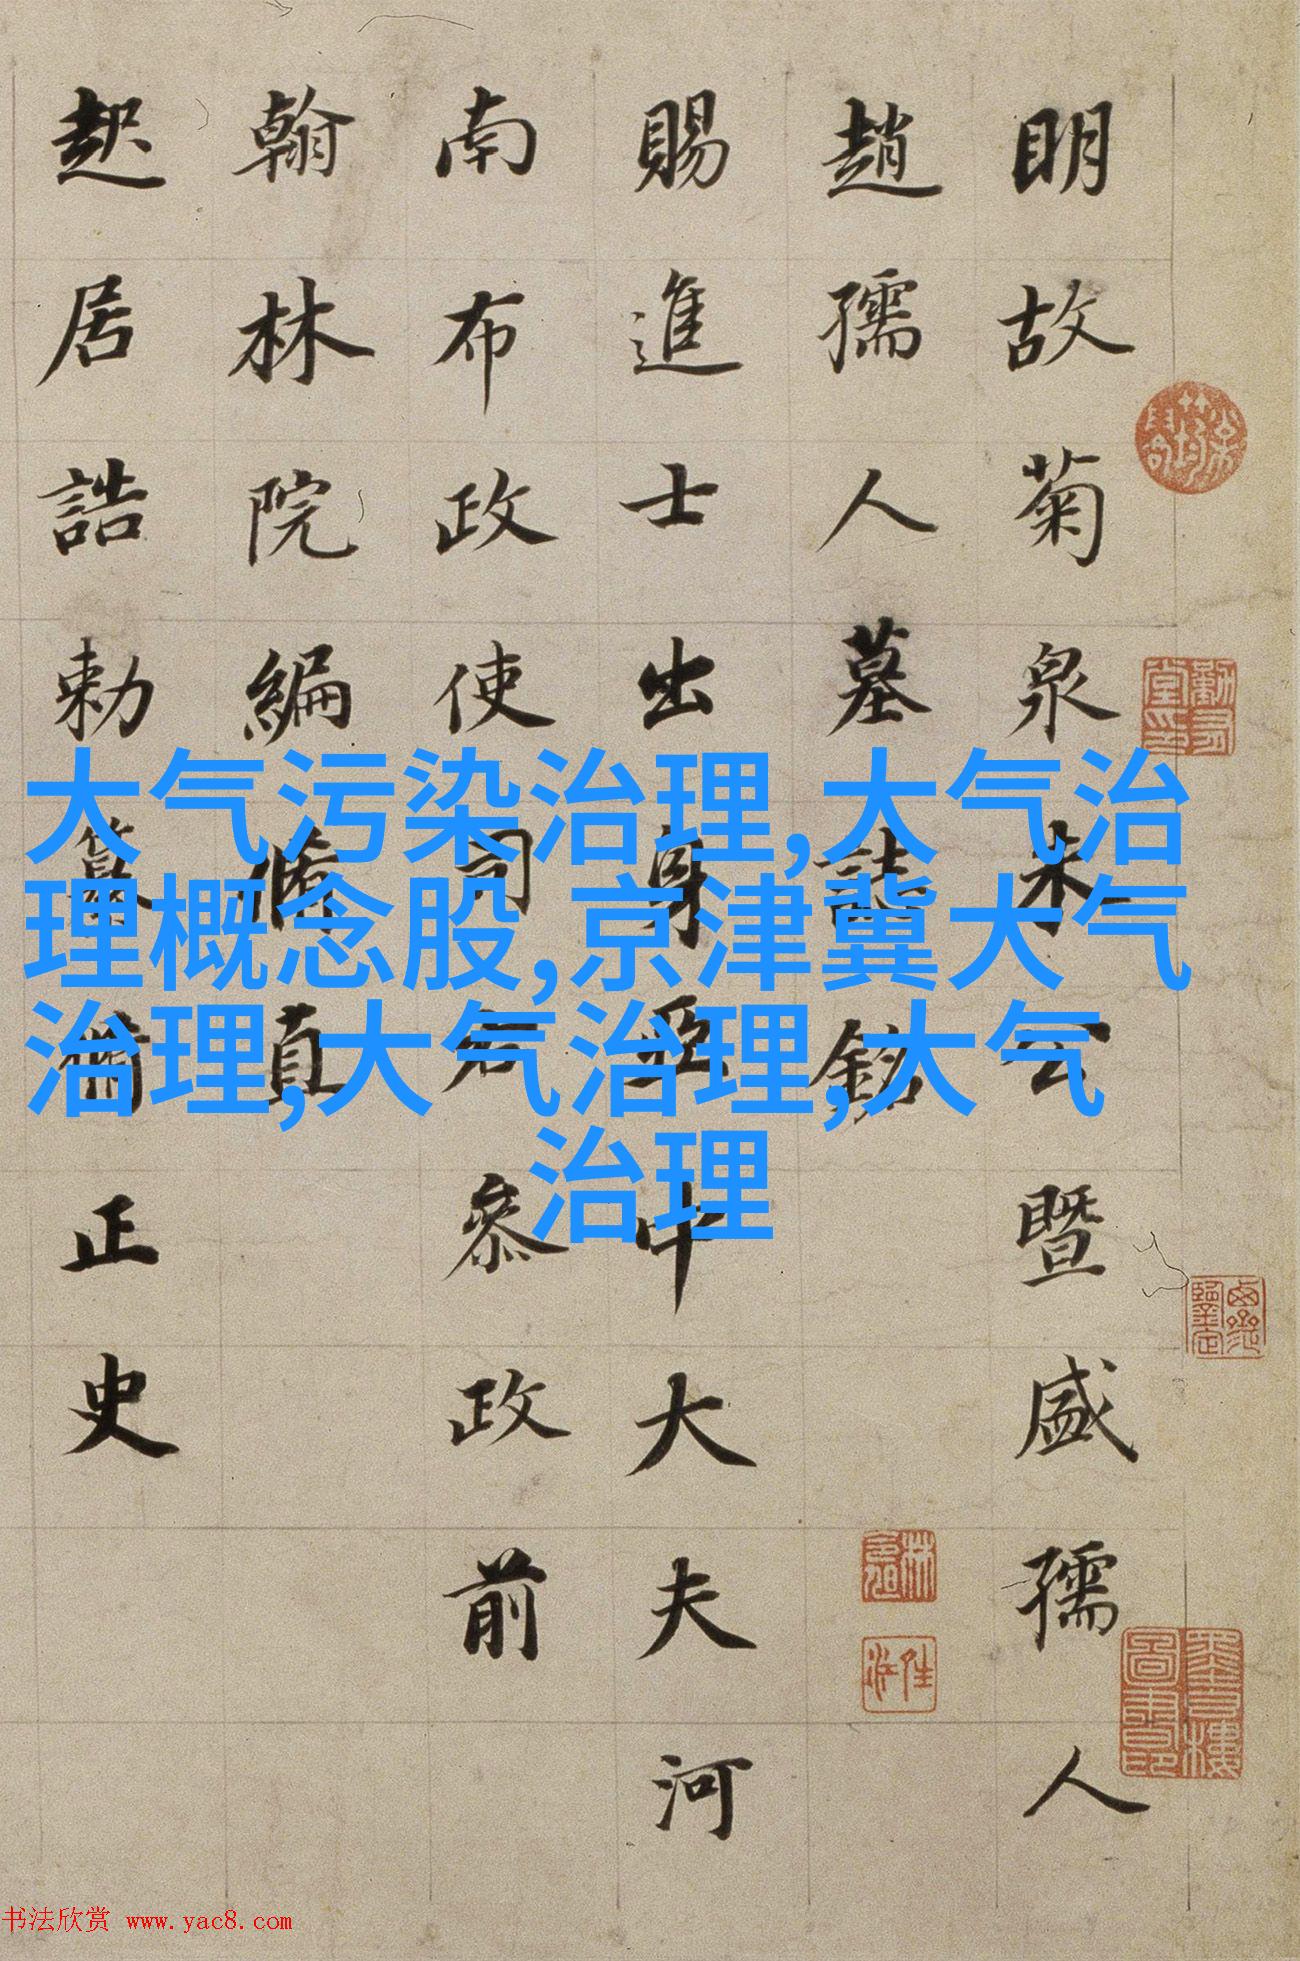 明故菊泉朱公暨盛孺人
趙孺人墓誌銘
賜進士出身亞中大夫河
南布政使司右參政前
翰林院編脩直
起居誥勅纂脩正史
大气污染治理,大气治
理概念股,京津冀大气
治理,大气治理,大气
治理
书法欣赏 www.yac8.com